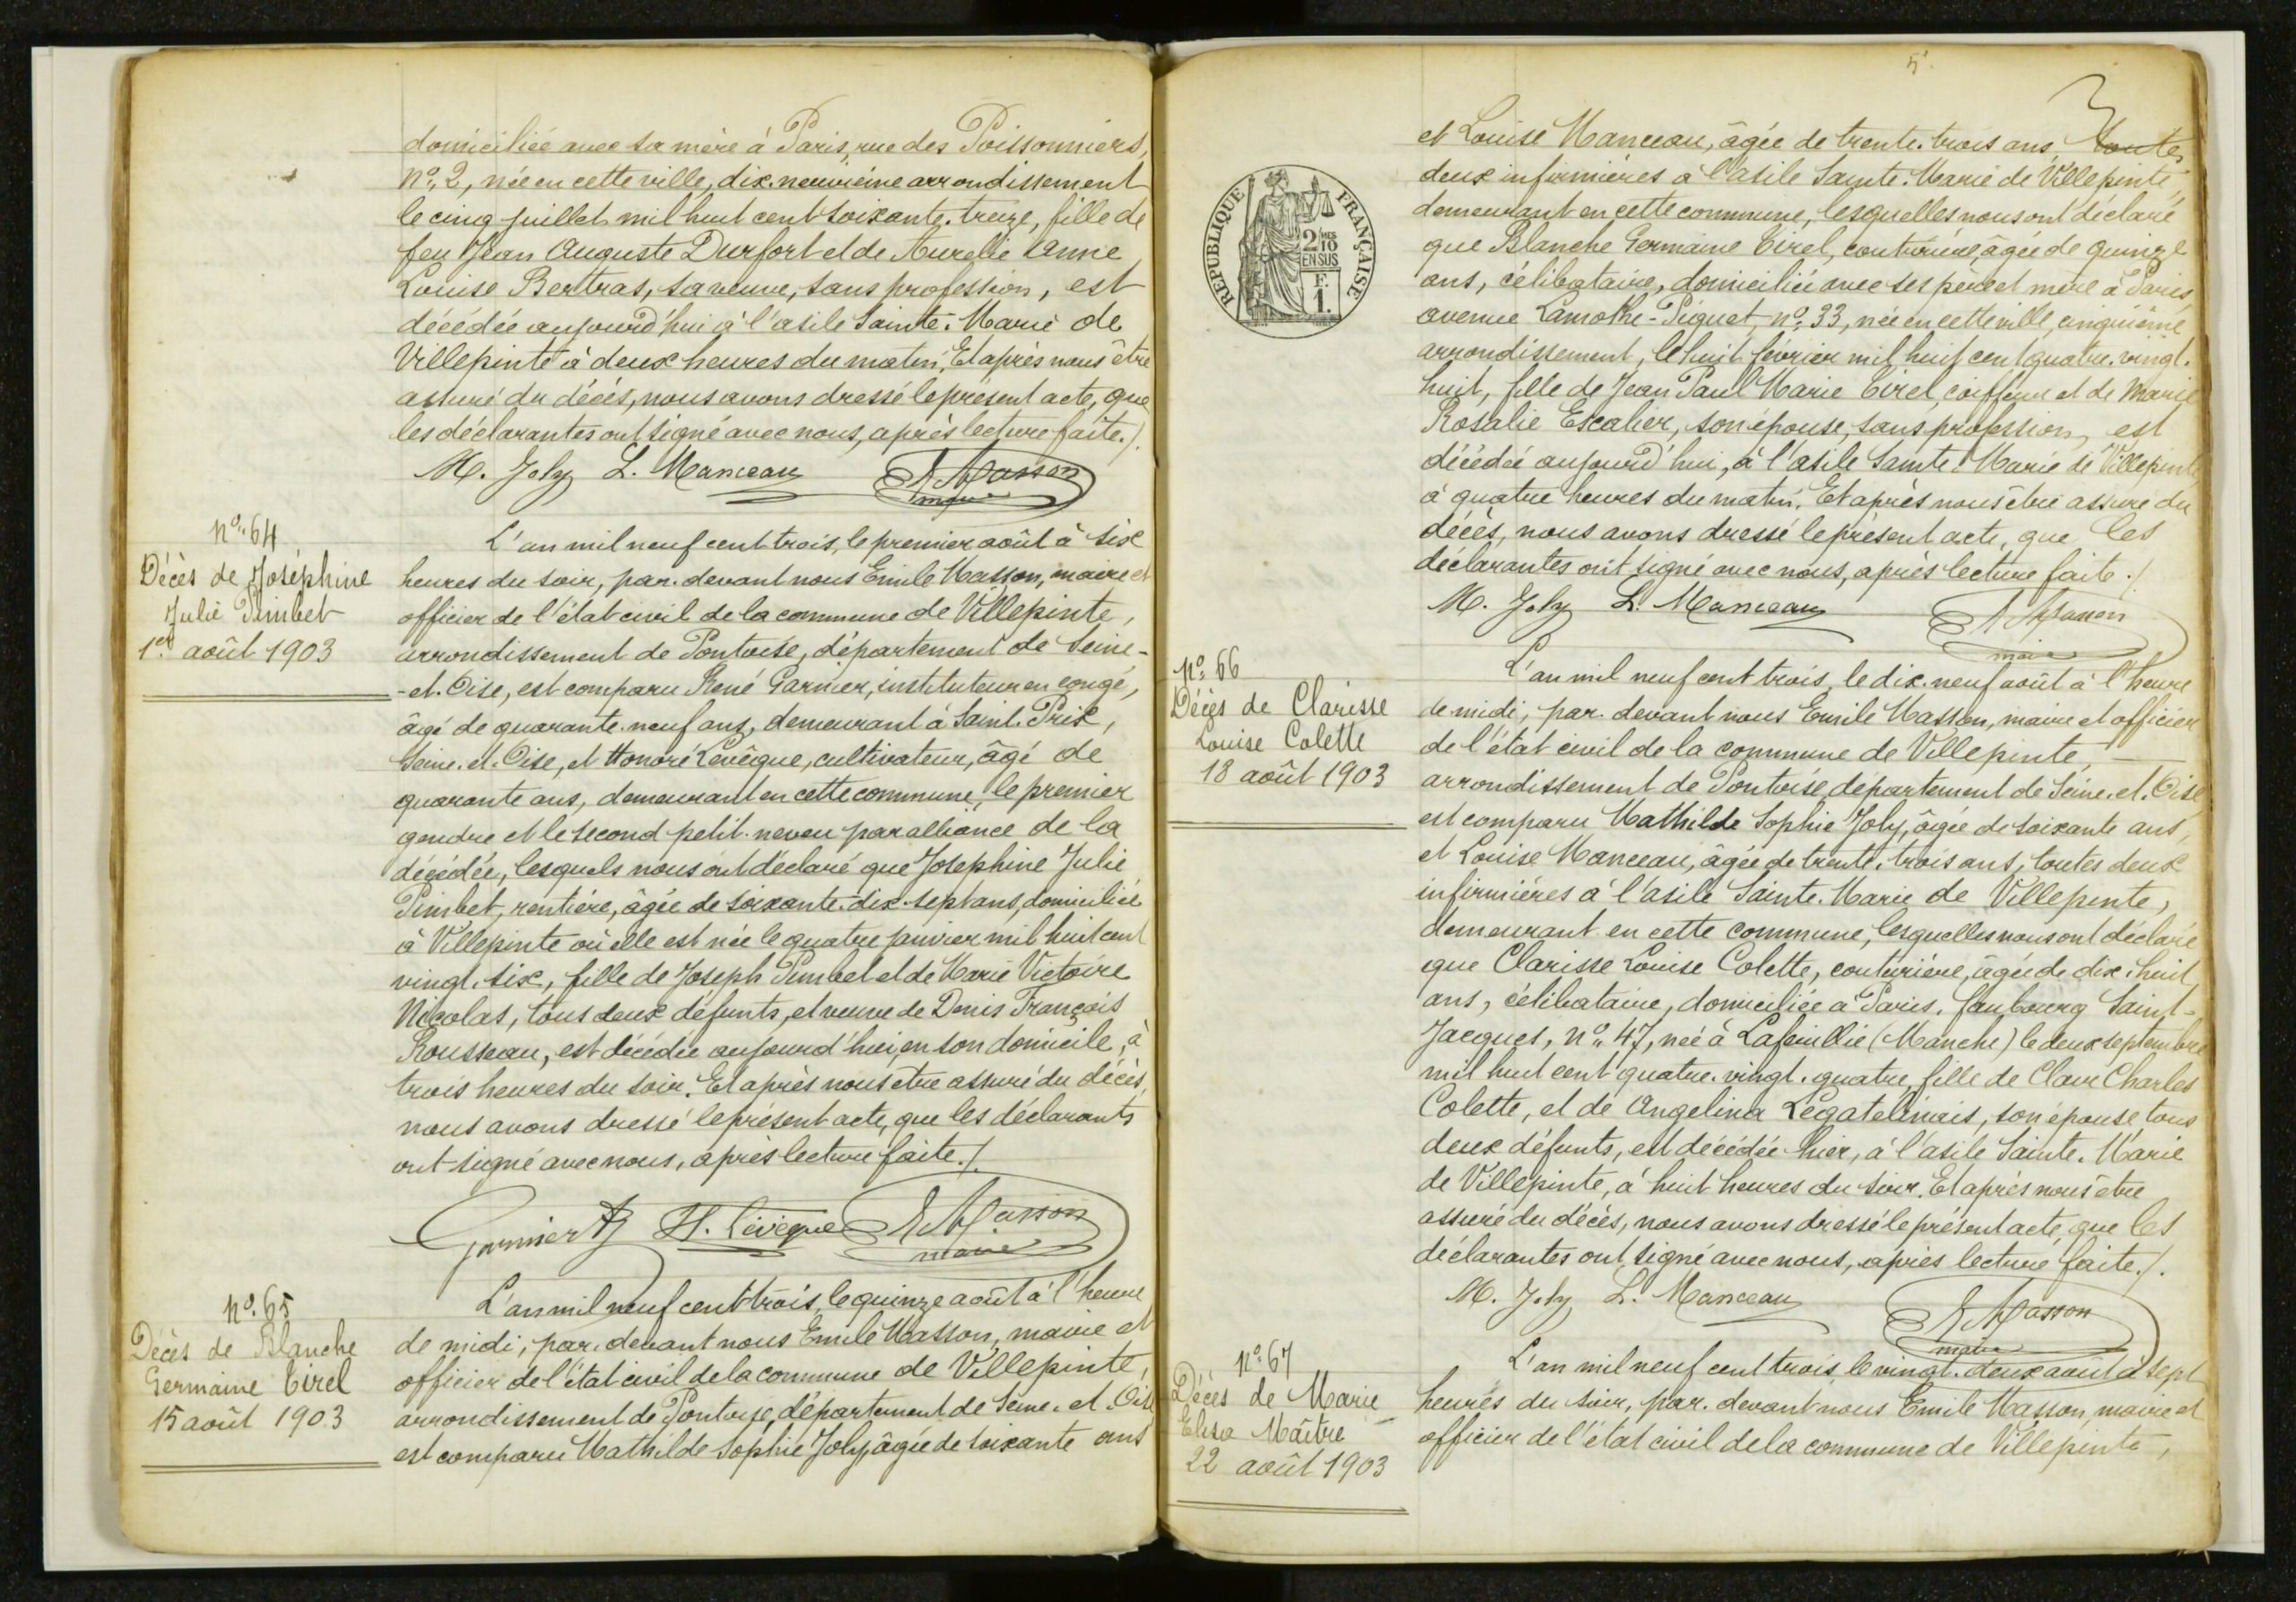 domiciliée avec sa mère à Paris, rue des Poissonniers,
no. 2, née en cette ville, dix-neuvième arrondissement
le cinq juillet mil huit cent soixante-treize, fille de
feu Jean Auguste Durfort et de Aurelie Anne
Louise Bertras, sa veuve, sans profession, est
décédée aujourd'hui à l'asile Sainte-Marie de
Villepinte à deux heures du matin. Et après nous être
assuré du décès, nous avons dressé le présent acte, que
les déclarantes ont signé avec nous, après lecture faite./.
M. Joly L. Manceau E. Masson
maire
No. 64
Décès de Joséphine
Julie Pimbet
1er août 1903
L'an mil neuf cent trois, le premier août à six
heures du soir, par-devant nous Emile Masson, maire et
officier de l'état civil de la commune de Villepinte,
arrondissement de Pontoise, département de Seine-
-et-Oise, est comparu René Garnier, instituteur en congé,
âgé de quarante-neuf ans, demeurant à Saint-Prix,
Seine-et-Oise, et Honoré Levêque, cultivateur, âgé de
quarante ans, demeurant en cette commune, le premier
gendre et le second petit-neveu par alliance de la
décédée, lesquels nous ont déclaré que Josephine Julie
Pimbet, rentière, âgée de soixante-dix-sept ans, domiciliée
à Villepinte où elle est née le quatre janvier mil huit cent
vingt-six, fille de Joseph Pimbet et de Marie Victoire
Nicolas, tous deux défunts, et veuve de Denis François
Rousseau, est décédée aujourd'hui, en son domicile, à
trois heures du soir. Et après nous être assuré du décès,
nous avons dressé le présent acte, que les déclarants
ont signé avec nous, après lecture faite./.
Garnier R H. Lévêque E. Masson
maire
No. 65
Décès de Blanche
Germaine Cirel
15 août 1903
L'an mil neuf cent trois, le quinze août à l'heure
de midi, par-devant nous Emile Masson, maire et
officier de l'état civil de la commune de Villepinte,
arrondissement de Pontoise, département de Seine-et-Oise
est comparu Mathilde Sophie Joly, âgée de soixante ans
5
RÉPUBLIQUE FRANÇAISE
2/10 MES
EN SUS
F.
1.
et Louise Manceau, âgée de trente-trois ans toutes
deux infirmières à l'asile Sainte-Marie de Villepinte,
demeurant en cette commune, lesquelles nous ont déclaré
que Blanche Germaine Cirel, couturière, âgée de quinze
ans, célibataire, domiciliée avec ses père et mère à Paris,
avenue Lamothe-Piquet, no. 33, née en cette ville, cinquième
arrondissement, le huit février mil huit cent quatre-vingt-
huit, fille de Jean Paul Marie Cirel, coiffeur et de Marie
Rosalie Escalier, son épouse, sans profession, est
décédée aujourd'hui, à l'asile Sainte-Marie de Villepinte
à quatre heures du matin. Et après nous être assuré du
décès, nous avons dressé le présent acte, que les
déclarantes ont signé avec nous, après lecture faite./.
M. Joly L. Manceau E. Masson
maire
No. 66
Décès de Clarisse
Louise Colette
18 août 1903
L'an mil neuf cent trois, le dix-neuf août à l'heure
de midi, par-devant nous Emile Masson, maire et officier
de l'état civil de la commune de Villepinte,
arrondissement de Pontoise, département de Seine-et-Oise,
est comparu Mathilde Sophie Joly, âgée de soixante ans,
et Louise Manceau, âgée de trente-trois ans, toutes deux
infirmières à l'asile Sainte-Marie de Villepinte,
demeurant en cette commune, lesquelles nous ont déclaré
que Clarisse Louise Colette, couturière, âgée de dix-huit
ans, célibataire, domiciliée à Paris, faubourg Saint-
Jacques, no. 47, née à Lafeuillie (Manche) le deux septembre
mil huit cent quatre-vingt-quatre, fille de Clair Charles
Colette, et de Angelina Legatelinais, son épouse tous
deux défunts, est décédée hier, à l'asile Sainte-Marie
de Villepinte, à huit heures du soir. Et après nous être
assuré du décès, nous avons dressé le présent acte, que les
déclarantes ont signé avec nous, après lecture faite./.
M. Joly L. Manceau E. Masson
maire
No. 67
Décès de Marie
Elisa Maître
22 août 1903
L'an mil neuf cent trois, le vingt-deux août à sept
heures du soir, par-devant nous Emile Masson, maire et
officier de l'état civil de la commune de Villepinte,